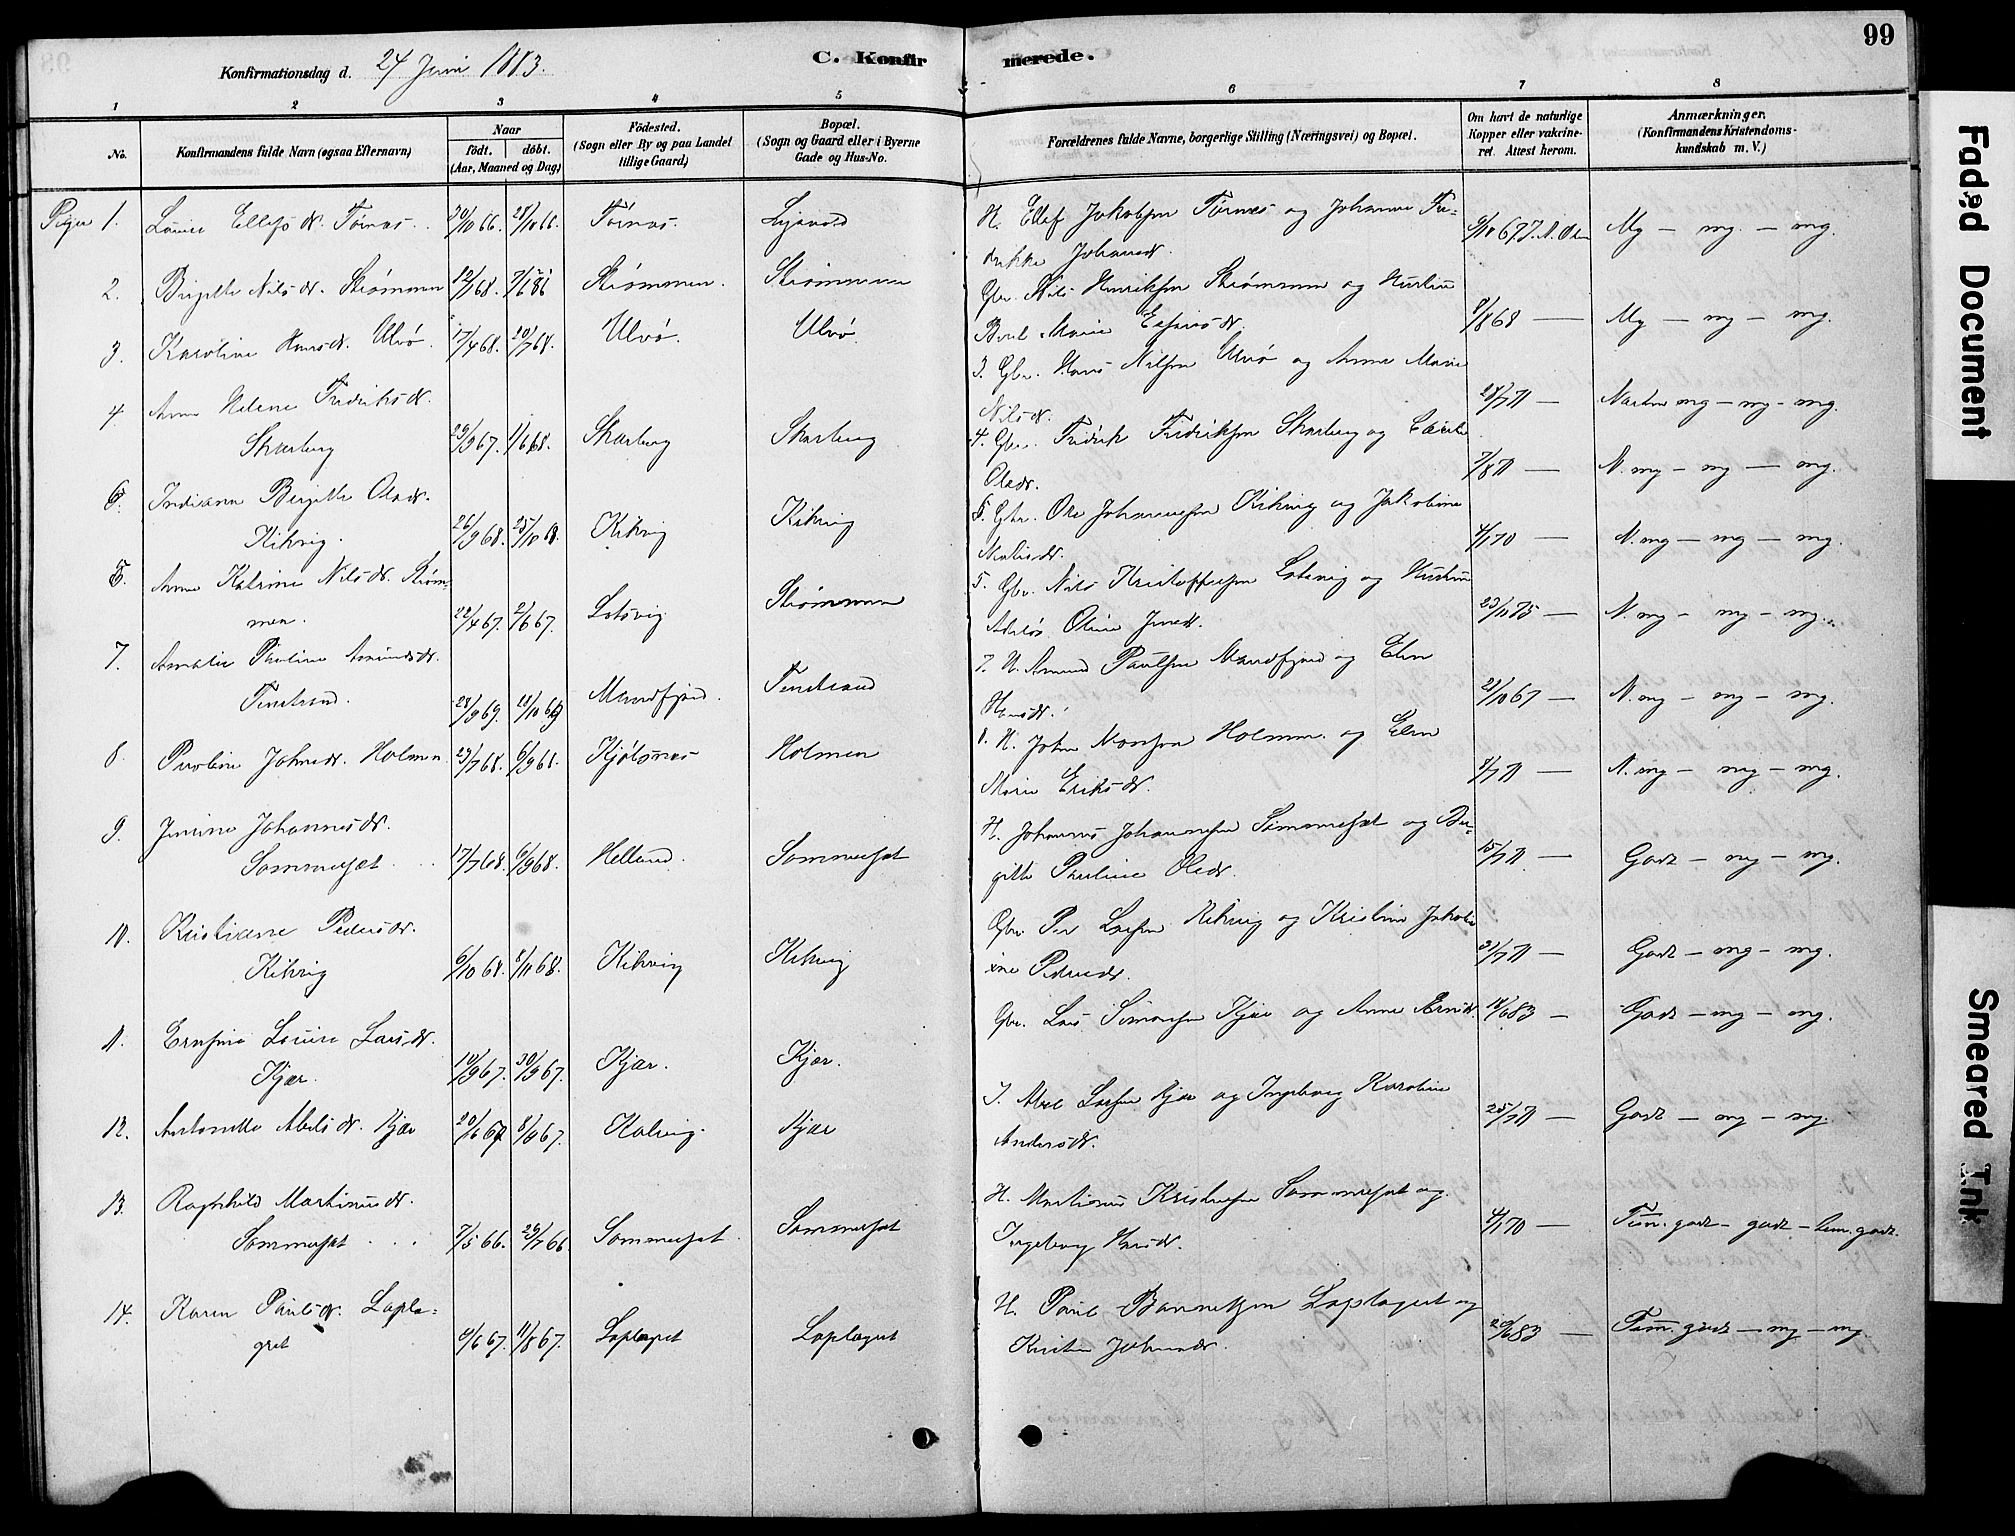 99
Konfirmationsdag d. 24 Juni 1883.
C. Konfir
merede.
1 2 3 4 5 6 7 8
No.
Konfirmandens fulde Navn (ogsaa Efternavn)
Naar
födt. döbt.
(Aar, Maaned og Dag)
Födested.
(Sogn eller By og paa Landet
tillige Gaard)
Bopæl.
(Sogn og Gaard eller i Byerne
Gade og Hus-No.
Forældrenes fulde Navne, borgerlige Stilling (Næringsvei) og Bopæl.
Om havt de naturlige
Kopper eller vakcine-
ret. Attest herom.
Anmærkninger.
(Konfirmandens Kristendoms-
kundskab m. V.)
Piger 1. Louise Ellefs dr. Tørnæs. 20/10 66. 28/10 66. Tørnæs.
H. Ellef Jakobsen Tørnes og Johanna Fre-
drikke Johansdr. Mg – mg. – mg.
2. Birgitte Nils dr. Strømmen Strømmen. Strømmen
Gbr. Nils Henriksen Strømmen og Hustru
Beril Marie 9/8 68 — Mg – mg – mg.
3. Karoline Hans dr. Ulvø. 17/4 68. 20/7 68. Ulvø. Ulvø.
3. Gbr. Hans Nilsen Ulvø og Anna Marie
Nilsdr. 28/7 71 — Næsten mg – mg – mg.
4. Anna Helene Fredriks dr.
Skarberg 29/9 67. 1/6 68. Skarberg Skarberg
4. Gbr. Fredrik Fredriksen Skarberg og
Oledr. 7/8 71 — N. mg – mg – mg.
6. Indianna Bergitte Olesdr.
Kikvig. 26/9 68. 25/10 68. Kikvig Kikvig
6. Gbr. Ole Johannesen Kikvig og Jakobine
4/1 70 — N. mg – mg – mg.
5. Anna Katrine Nilsdr. Strøm-
men. 22/4 67. 2/6 67. Lotsvig Strømmen
5. Gbr. Nils Kristoffersen Lotsvig og Hustru
Oline N. mg – mg – mg.
7. Amalie Pauline Amundsdr.
Finstrand. 28/10 69
7. H. Amund Paulsen Mandfjord og Elen
Hansdr. 21/10 67 — N. mg – mg – mg.
8. Pauline Johnsdr. Holmen 23/7 68. 6/9 68. Kjølsnæs Holmen
8. H. John Monsen Holmen og Elen
Marie Eriksdr. 8/7 71 — N. mg – mg – mg.
9. Jensine Johannesdr.
Sommerset 17/7 68. 6/9 68. Helland. Sommerset
H. Johannes Johannesen Sommerset og Bir-
gitte Pauline Oledr. 15/7 71 — Godt – mg – mg.
10. Kristianne Pedersdr.
Kikvig 6/10 68. 8/11 68. Kikvig Kikvig
Gbr. Per Larsen Kikvig og Kristine Jakob-
ine Pedersdr. 31/7 71 — Godt – mg – mg.
11. Ernfine Louise Larsdr.
Kjær. 10/9 67. 30/9 67. Kjær. Kjær.
Gbr. Lars Simonsen Kjær og Anne 18/6 83 — Godt – mg – mg.
12. Antonette Abels dr. Kjær Kalvig. Kjær
I. Abel Larsen Kjær og Ingeborg Karoline
Andersdr. 25/7 71 — Godt – mg – mg.
13. Ragnhild Martinusdr.
Sommerset 7/5 66. 29/7 66. Sommerset. Sommerset
H. Martinus Kristensen Sommerset og
Ingeborg Hansdr. 4/1 70 — Tem. godt – godt – tem. godt.
14. Karen Pauls dr. Løpla-
gret 9/6 67. 11/8 67. Løplagret Løplagret
H. Paul Berntsen Løplagret og
20/6 83 — Tem. godt – mg – mg.
Faded Document
Smeared Ink